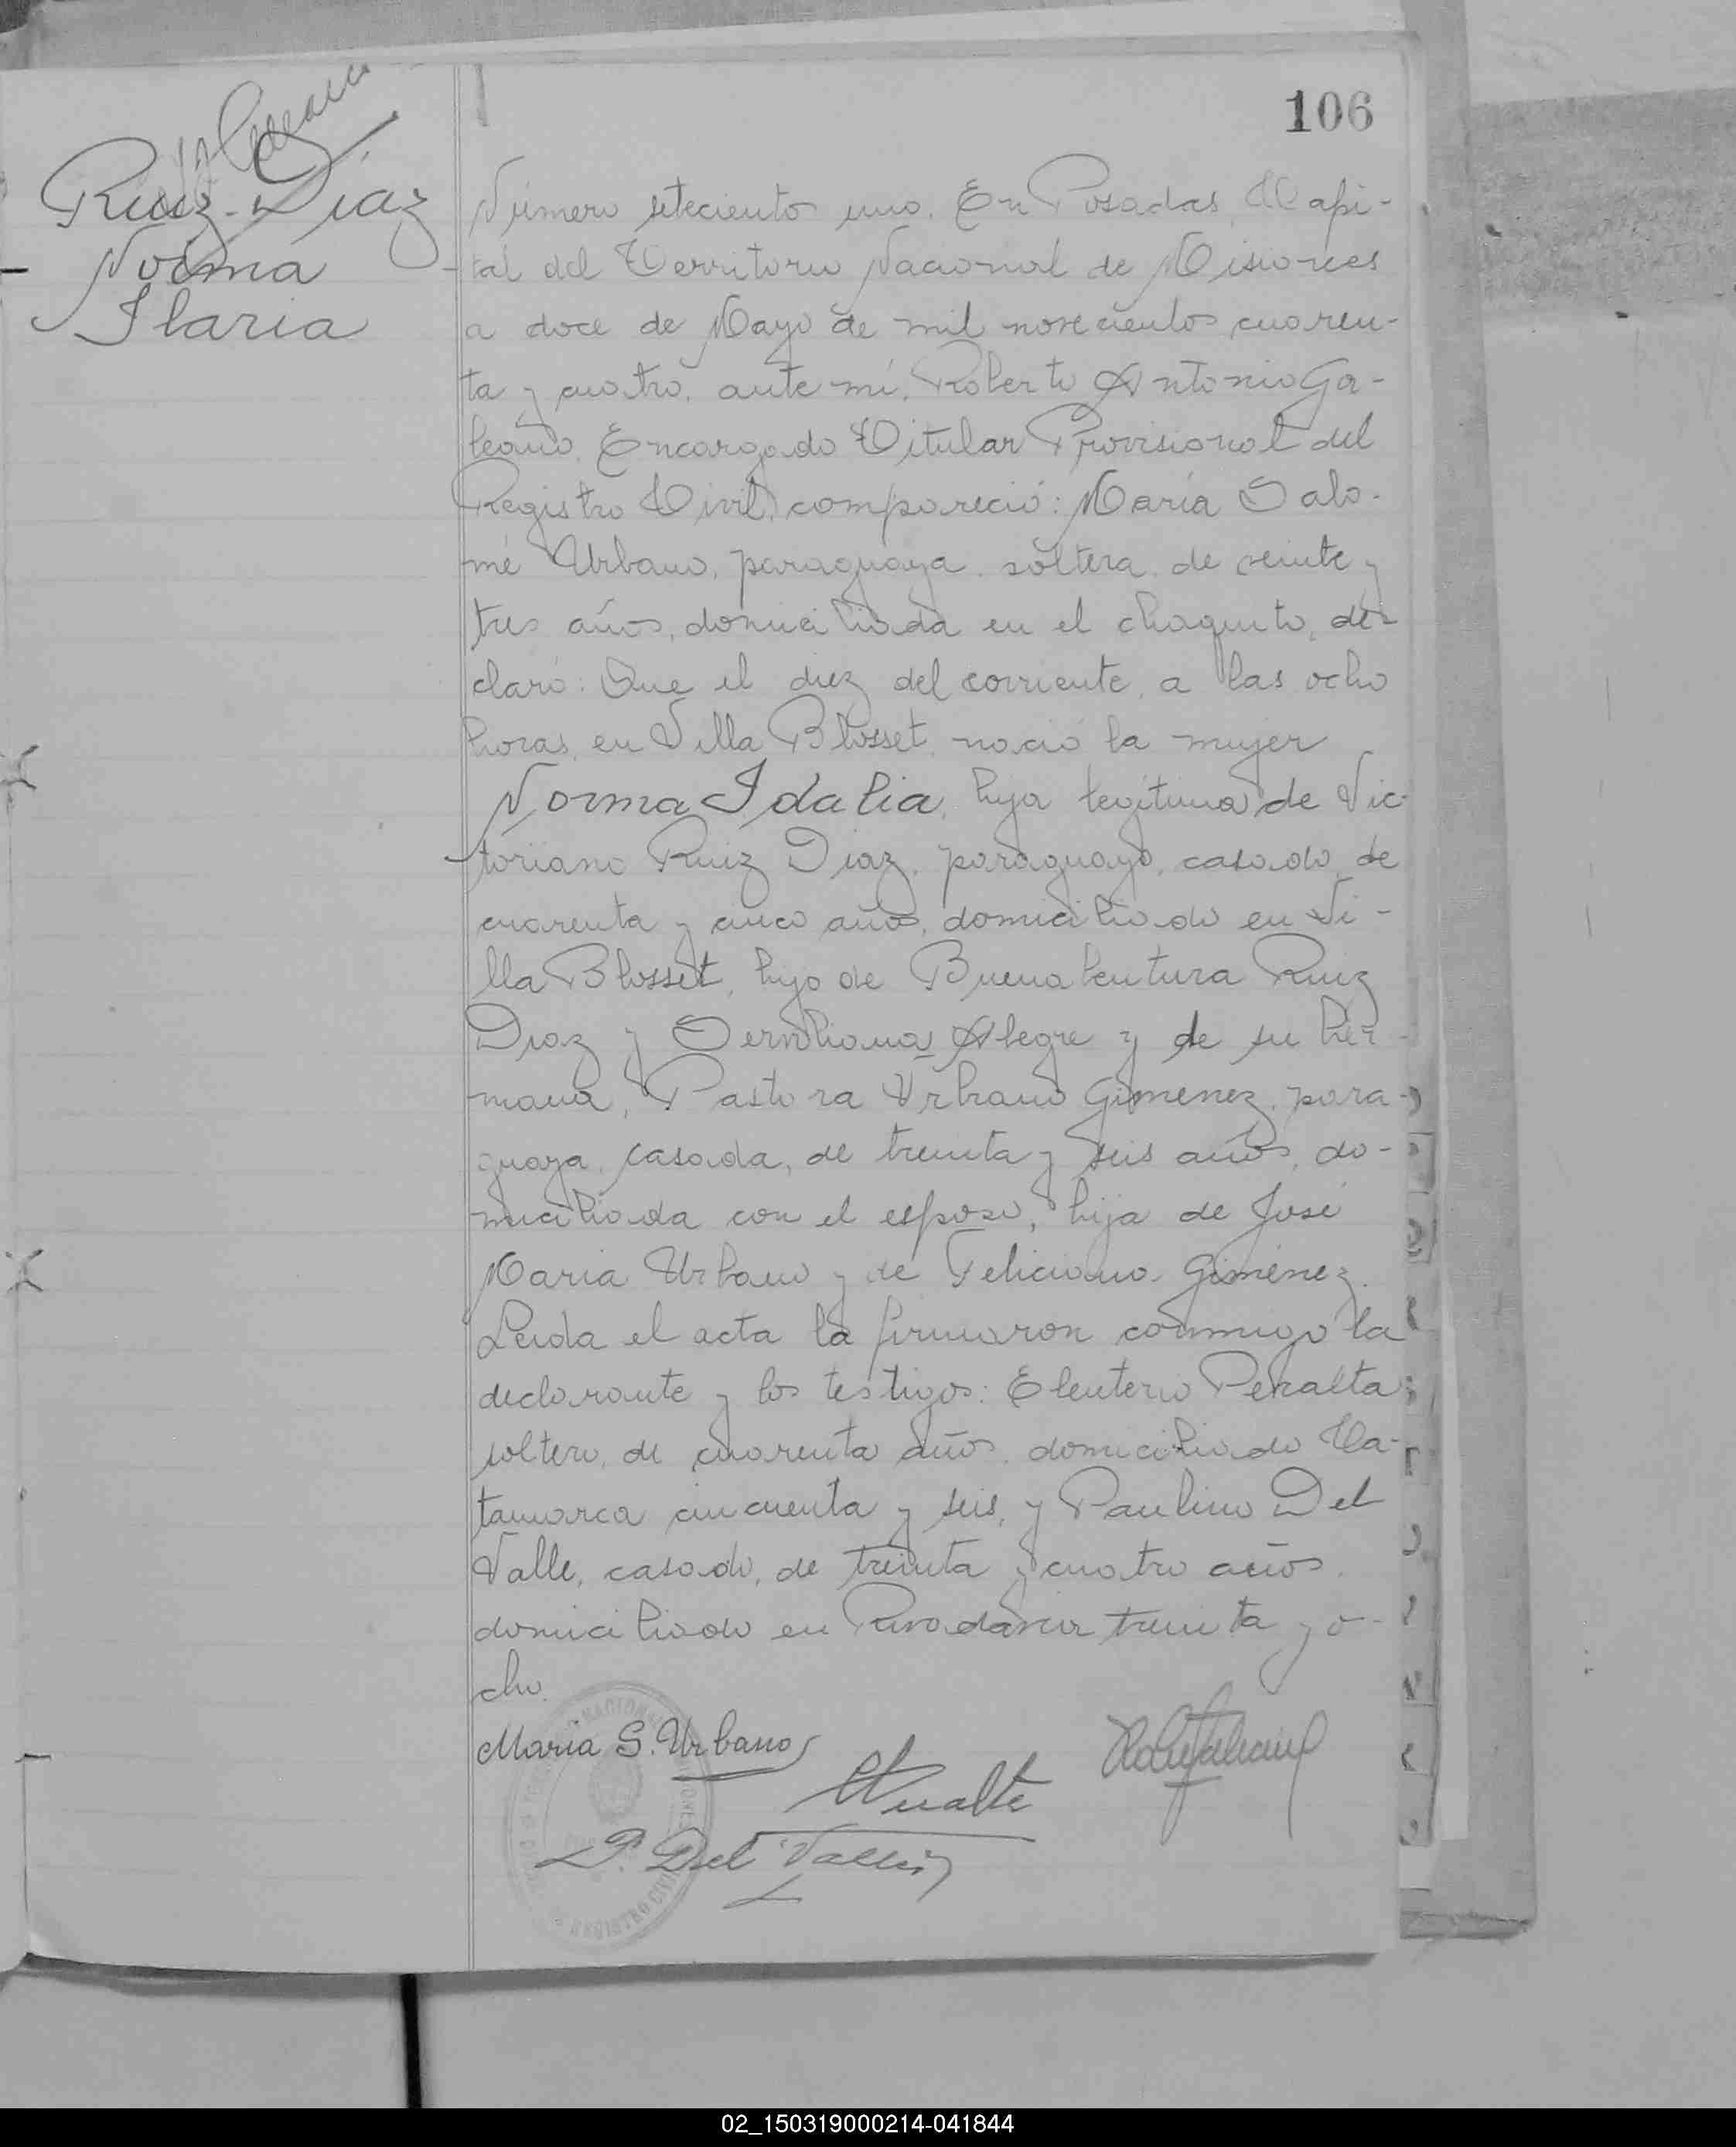 106
Ruiz-Diaz
Norma
Ilaria
Número setecientos uno. En Posadas, Capi-
tal del Territorio Nacional de Misiones
a doce de Mayo de mil novecientos cuaren-
ta y cuatro, ante mí, Roberto Antonio Ga-
leano, Encargado Titular Provisional del
Registro Civil, compareció: María Salo-
mé Urbano, paraguaya, soltera, de veinte y
tres años, domiciliada en el chaquito, de-
claró: Que el diez del corriente, a las ocho
horas, en Villa Blosset, nació la mujer
Norma Idalia, hija legitima de Vic-
toriano Ruiz Diaz, paraguayo, casado, de
cuarenta y cinco años, domiciliado en Vi-
lla Blosset, hijo de Buenabentura Ruiz
Diaz y Serviliana Alegre y de su her-
mana, Pastora Urbano Gimenez, para-
guaya, casada, de treinta y seis años, do-
miciliada con el esposo, hija de José
Maria Urbano y de Feliciana Giménez.
Leida el acta la firmaron conmigo la
declarante y los testigos: Eleuterio Peralta
soltero, de cuarenta años, domiciliado Ca-
tamarca cincuenta y seis, y Paulino Del
Valle, casado, de treinta y cuatro años
domiciliado en Rivadavia treinta y o-
cho.
Maria S. Urbano
P. Del Valle
REGISTRO CIVIL
02_150319000214-041844